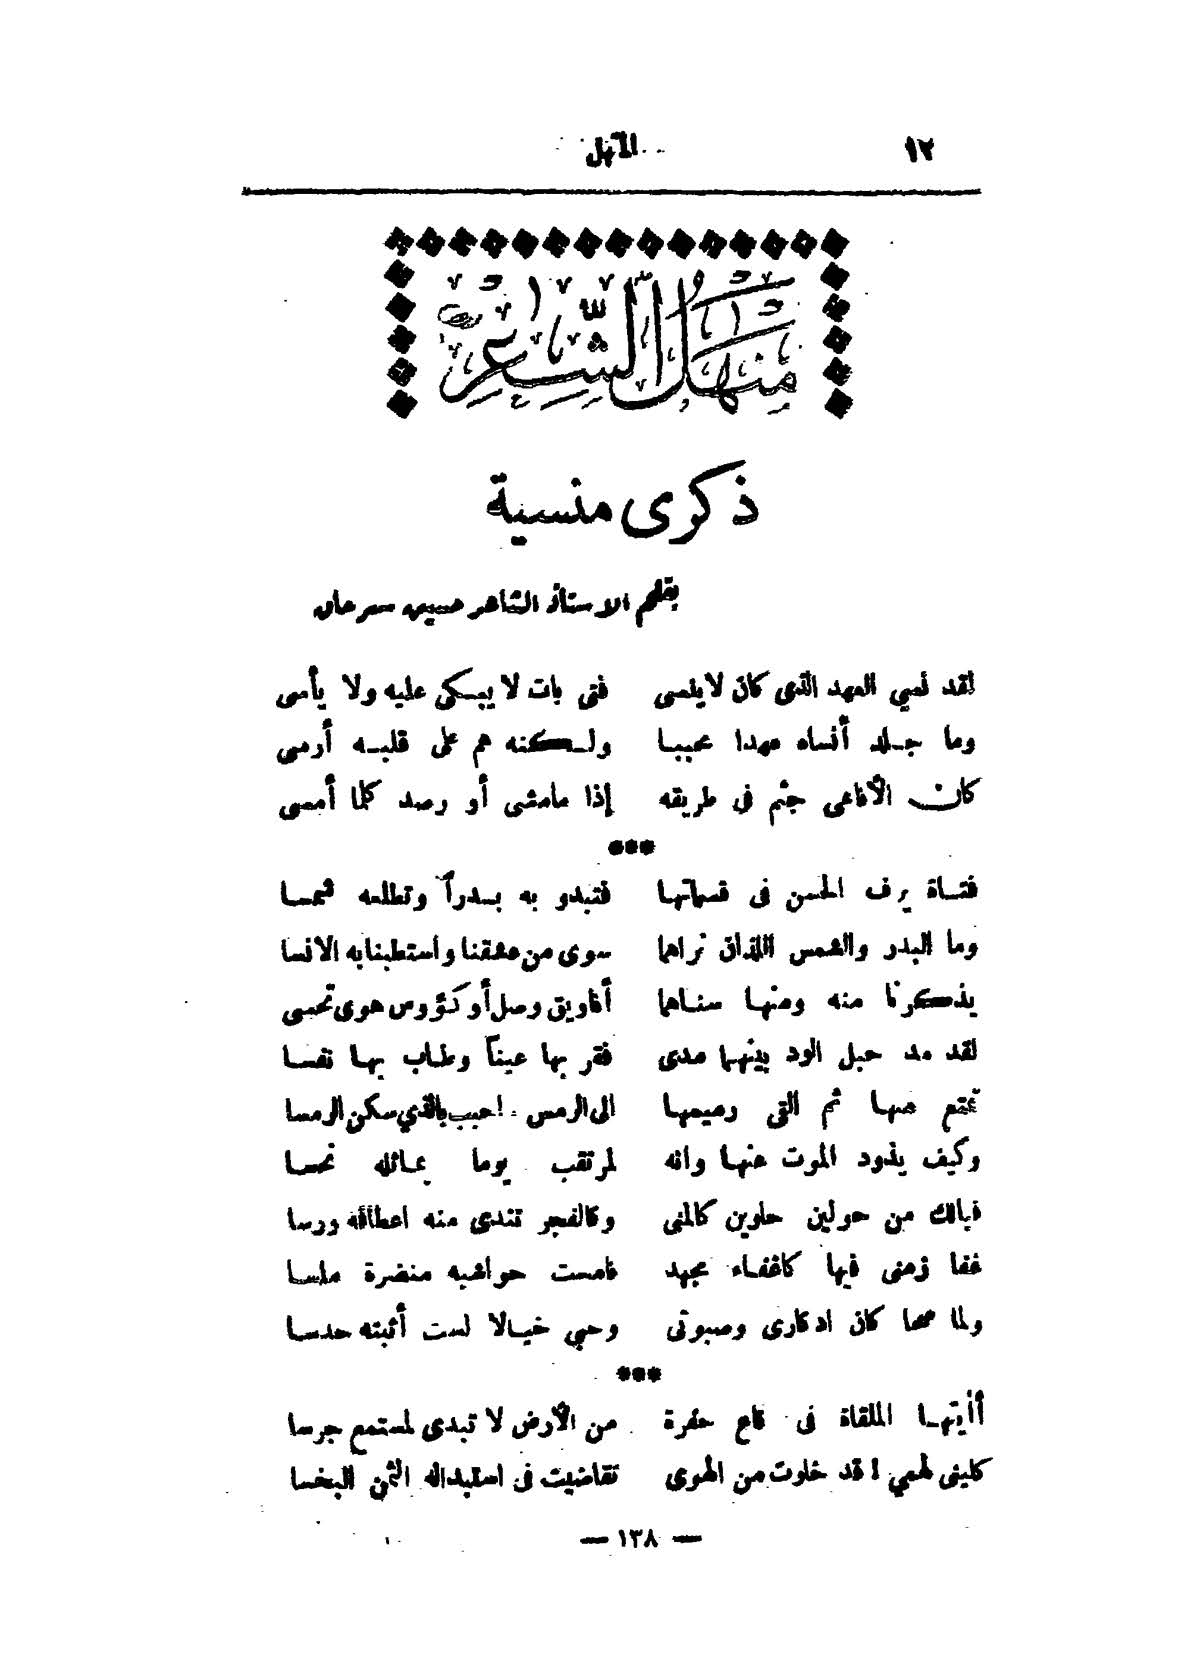 ١٢ المنهل
منهل الشاعر
ذكرى منسية
بقلم الاستاذ الشاعر حسين سرحان
لقد نسي العهد الذى كان لا ينسى فتى بات لا يبكى عليه ولا يأسى
وما جلد أنساه عهدا محببا ولكنه هم على قلبه أرسى
كان الأفاعى جثم فى طريقه إذا ما مشى أو رصد كلما أمسى
***
فتاة يرف الحسن فى قسماتها فتبدو به بدراً وتطلعه شمسا
وما البدر والشمس اللذان نراهما سوى من عشقنا واستطبنا به الانسا
يذكرنا منه ومنها سناهما أفاويق وصل أو كؤوس هوى تحسى
لقد مد حبل الود بينهما مدى فقر بها عيناً وطاب بها نفسا
تمتع منها ثم القى رميمها الى الرمس احبب بالذي سكن الرمسا
وكيف يذود الموت عنها وانه لمرتقب يوما بمائله نحسا
فبالك من حولين حلوين كالمنى وكالفجر تندى منه اعطافه ورسا
غفا زمنى فيها كاغفاء مجهد فامست حواشيه منضرة ملسا
ولما صحا كان ادكارى وصبوتى وحبي خيالا لست أثبته حدسا
***
أأيتها الملقاة فى قاع حفرة من الأرض لا تبدى لمستمع جرسا
كلينى لهمي ! قد خلوت من الهوى تقاضيت فى استبداله الثمن البخسا
— ١٣٨ —